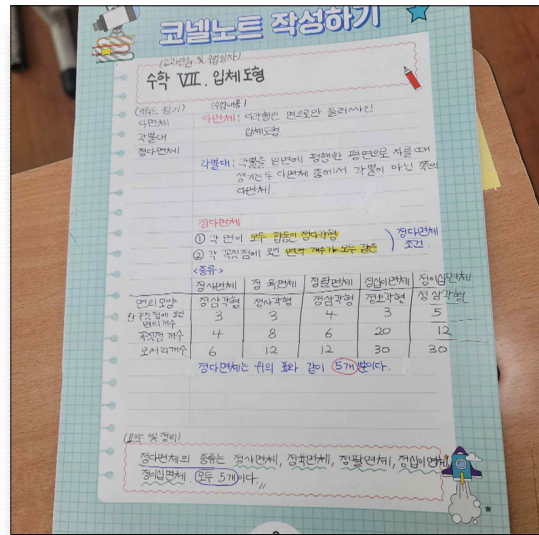 코넬노트 작성하기
(교과단원 및 수업일자)
수학 VII. 입체도형
(키워드 필기) (수업내용)
다면체 다면체: 다각형인 면으로만 둘러싸인
각뿔대 입체도형
정다면체
각뿔대: 각뿔을 밑면에 평행한 평면으로 자를 때
생기는 두 다면체 중에서 각뿔이 아닌 쪽의
다면체.
정다면체
① 각 면이 모두 합동인 정다각형 정다면체
② 각 꼭짓점에 모인 면의 개수가 모두 같음 조건.
<종류>
정사면체 정육면체 정팔면체 정십이면체 정이십면체
면의 모양 정삼각형 정사각형 정삼각형 정오각형 정삼각형
한 꼭짓점에 모인 면의 개수 3 3 4 3 5
꼭짓점 개수 4 8 6 20 12
모서리 개수 6 12 12 30 30
정다면체는 위의 표와 같이 5개 뿐이다.
(요약 및 정리)
정다면체의 종류는 정사면체, 정육면체, 정팔면체, 정십이면체,
정이십면체. 모두 5개이다.